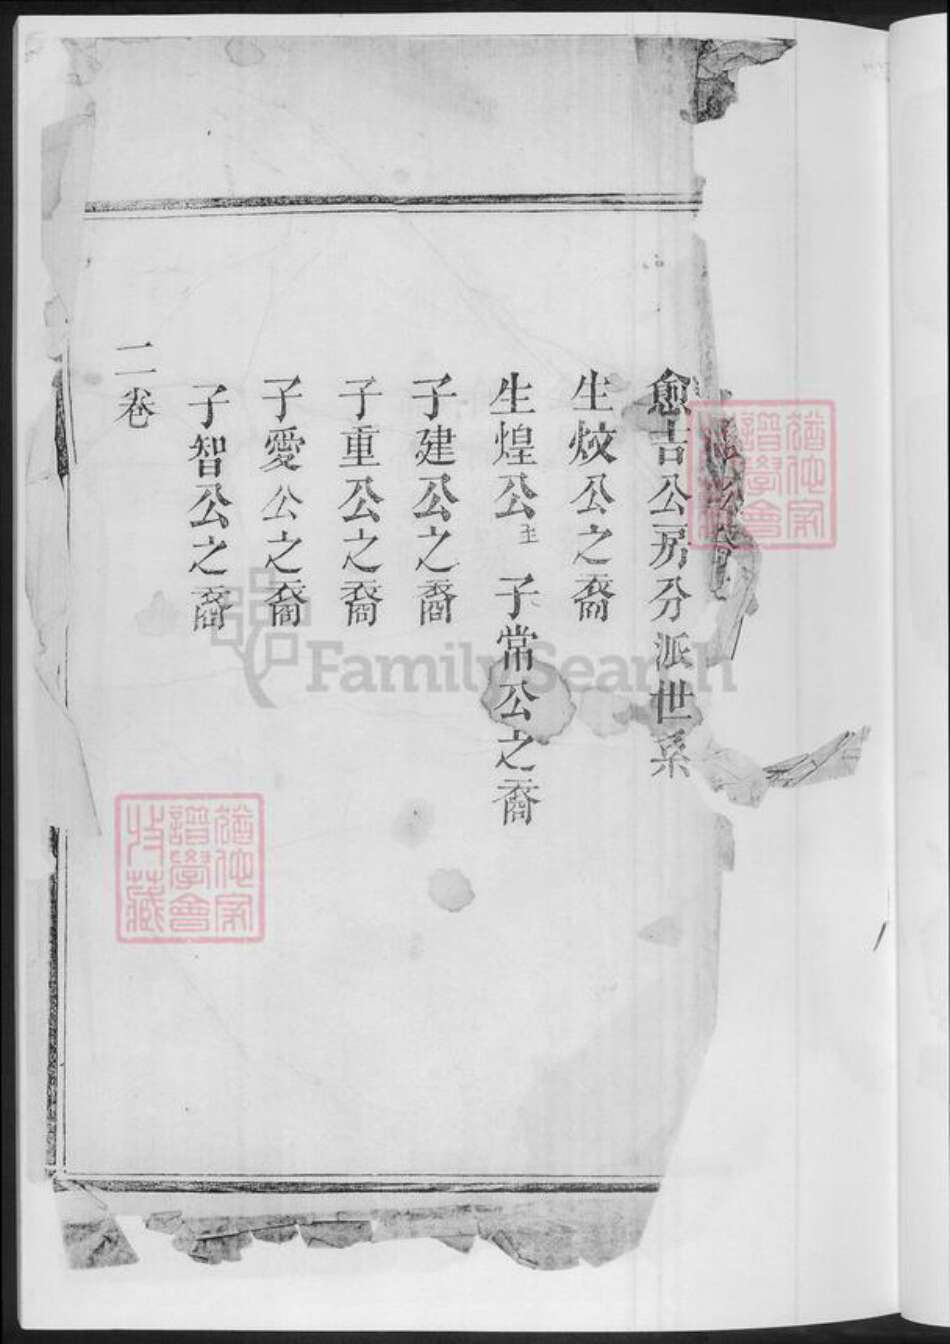 愈吉公房分派世系
生炆公之裔
生煌公主 子常公之裔
子建公之裔
子重公之裔
子愛公之裔
子智公之裔
二卷
FamilySearch
譜學會
譜學會